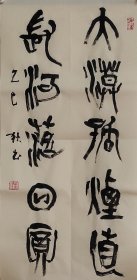 大漠孤煙直
長河落日圓
乙巳